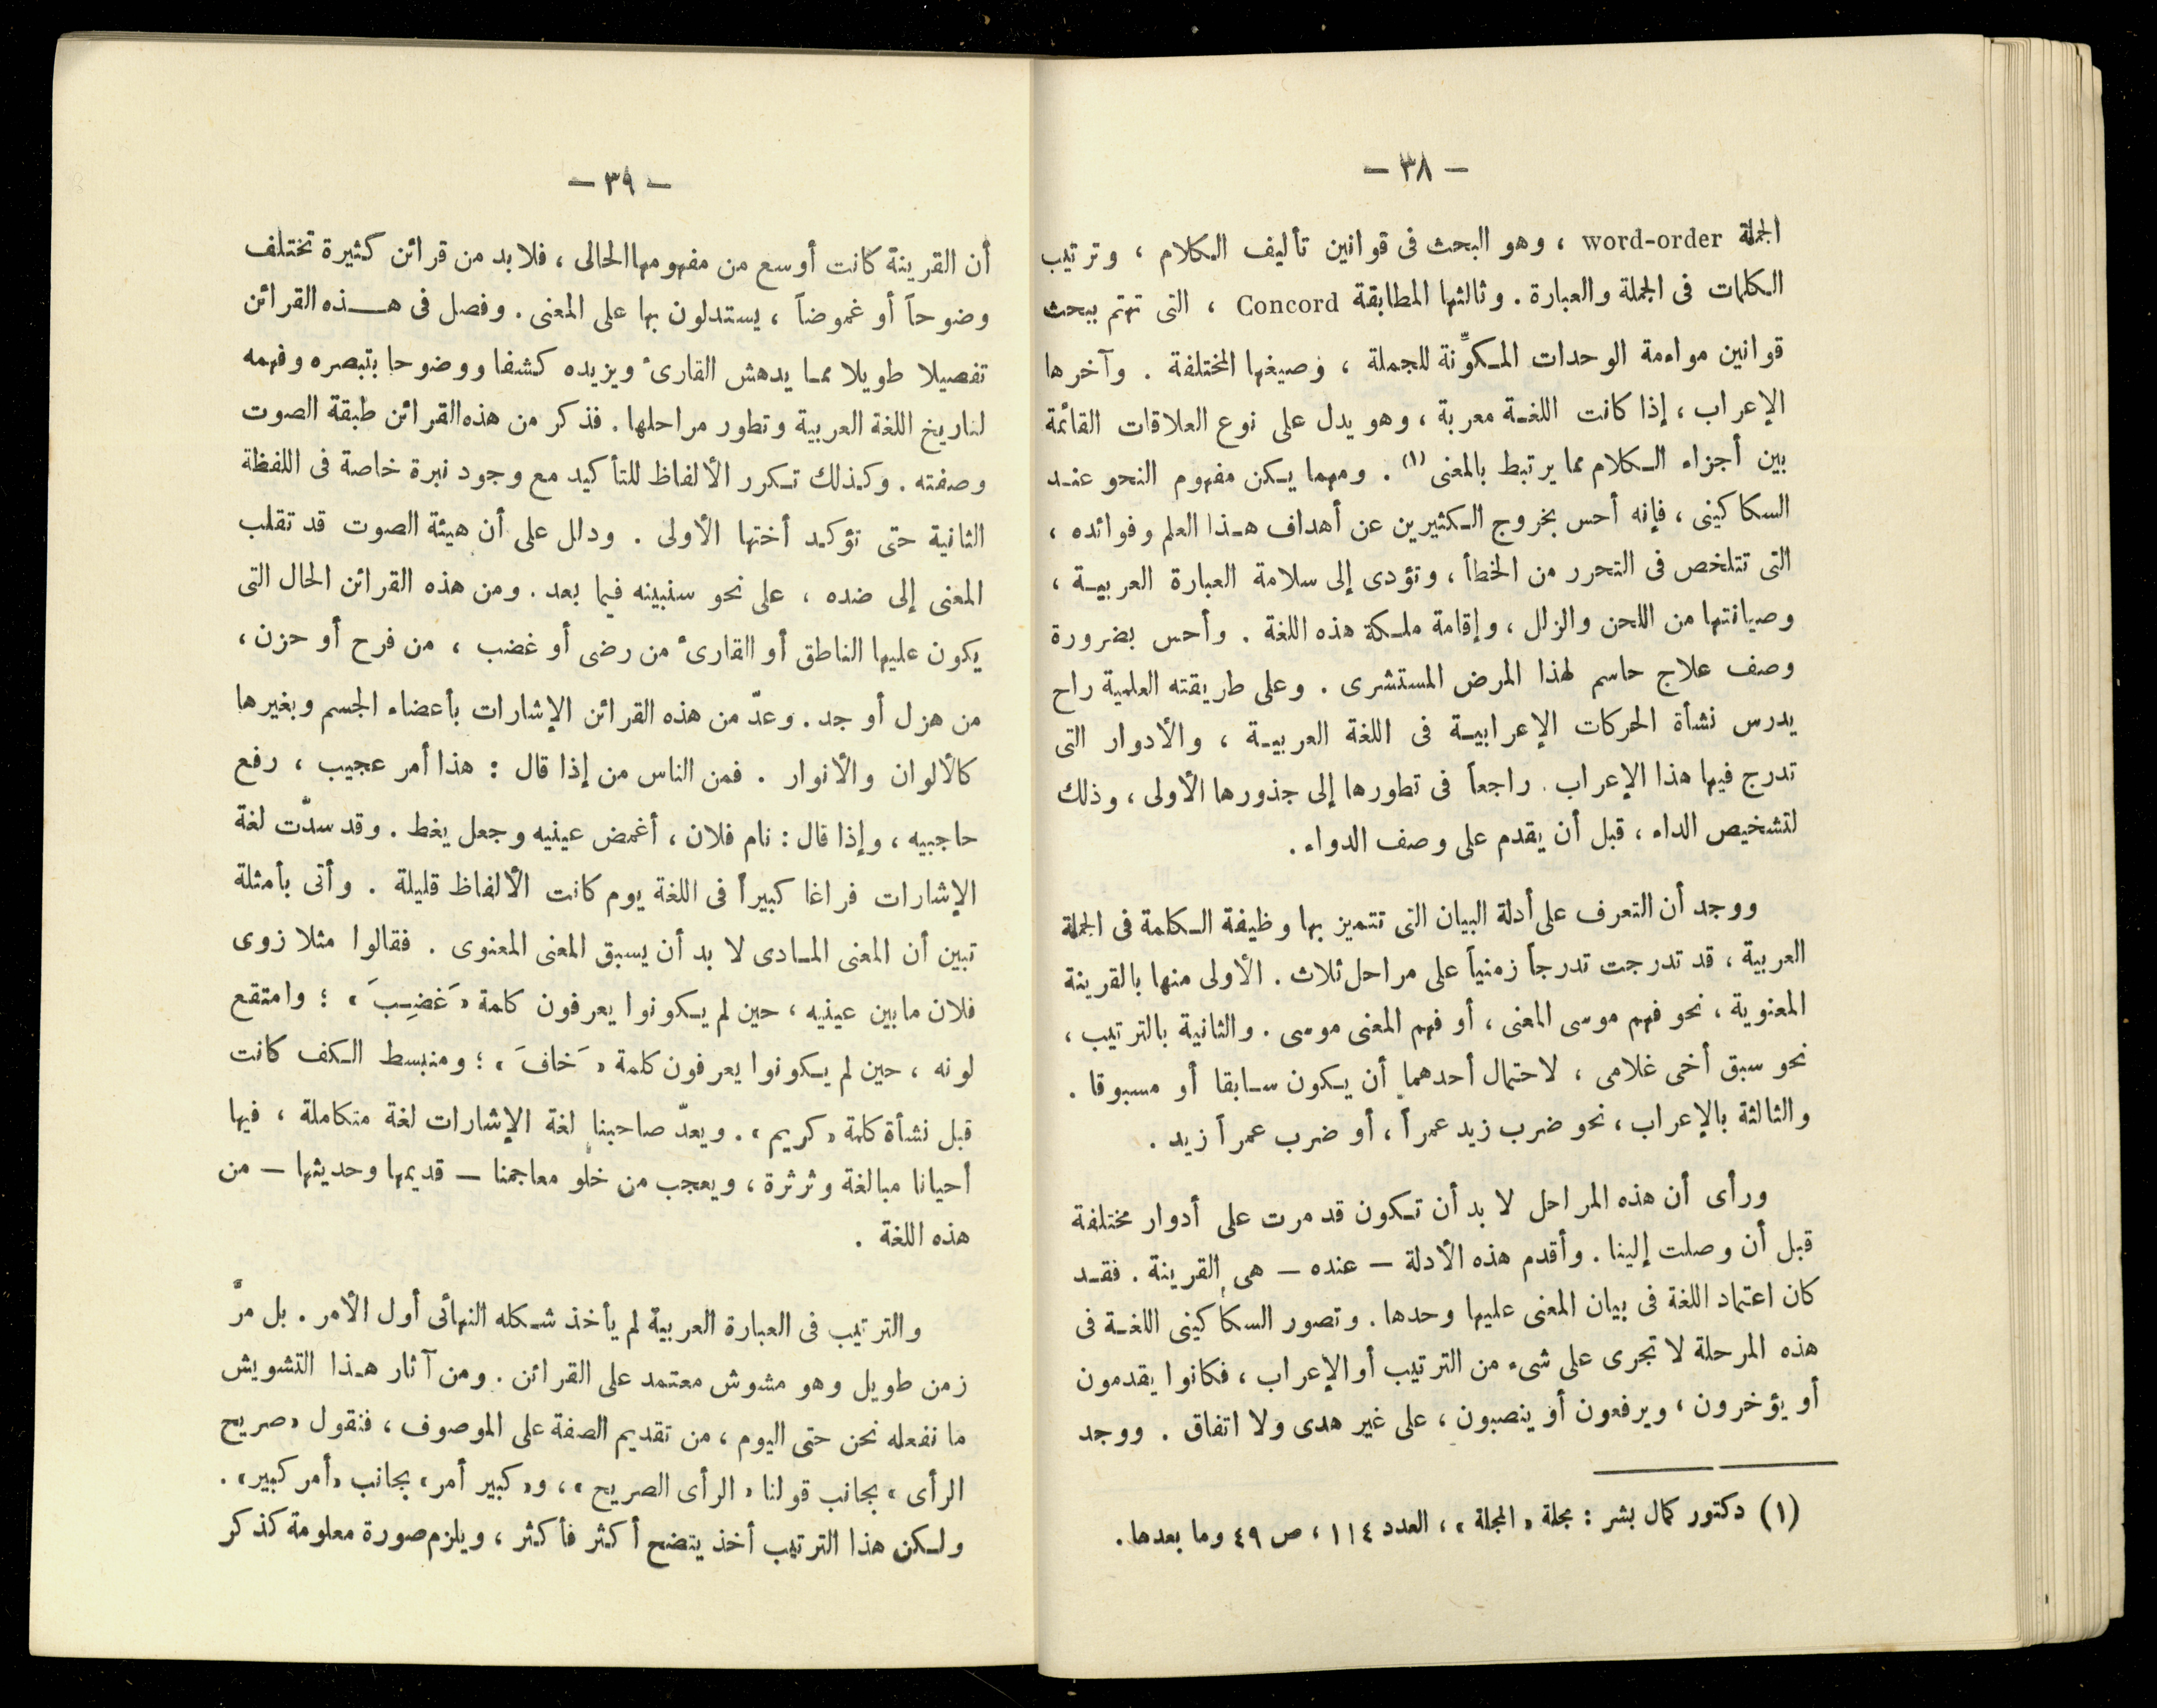 — ٣٨ —
الجملة word-order ، وهو البحث فى قوانين تأليف الكلام ، وترتيب
الكلمات فى الجملة والعبارة . وثالثها المطابقة Concord ، التى تهتم ببحث
قوانين مواءمة الوحدات المكوِّنة للجملة ، وصيغها المختلفة . وآخرها
الإعراب ، إذا كانت اللغة معربة ، وهو يدل على نوع العلاقات القائمة
بين أجزاء الكلام مما يرتبط بالمعنى (١) . ومهما يكن مفهوم النحو عند
السكاكينى ، فإنه أحس بخروج الكثيرين عن أهداف هذا العلم وفوائده ،
التى تتلخص فى التحرر من الخطأ ، وتؤدى إلى سلامة العبارة العربية ،
وصيانتها من اللحن والزلل ، وإقامة ملكة هذه اللغة . وأحس بضرورة
وصف علاج حاسم لهذا المرض المستشرى . وعلى طريقته العلمية راح
يدرس نشأة الحركات الإعرابية فى اللغة العربية ، والأدوار التى
تدرج فيها هذا الإعراب . راجعاً فى تطورها إلى جذورها الأولى ، وذلك
لتشخيص الداء ، قبل أن يقدم على وصف الدواء .
ووجد أن التعرف على أدلة البيان التى تتميز بها وظيفة الكلمة فى الجملة
العربية ، قد تدرجت تدرجاً زمنياً على مراحل ثلاث . الأولى منها بالقرينة
المعنوية ، نحو فهم موسى المعنى ، أو فهم المعنى موسى . والثانية بالترتيب ،
نحو سبق أخى غلامى ، لاحتمال أحدهما أن يكون سابقا أو مسبوقا .
والثالثة بالإعراب ، نحو ضرب زيد عمراً ، أو ضرب عمراً زيد .
ورأى أن هذه المراحل لا بد أن تكون قد مرت على أدوار مختلفة
قبل أن وصلت إلينا . وأقدم هذه الأدلة — عنده — هى القرينة . فقد
كان اعتماد اللغة فى بيان المعنى عليها وحدها . وتصور السكاكينى اللغة فى
هذه المرحلة لا تجرى على شىء من الترتيب أو الإعراب ، فكانوا يقدمون
أو يؤخرون ، ويرفعون أو ينصبون ، على غير هدى ولا اتفاق . ووجد
(١) دكتور كمال بشر : مجلة « المجلة » ، العدد ١١٤ ، ص ٤٩ وما بعدها .
— ٣٩ —
أن القرينة كانت أوسع من مفهومها الحالى ، فلا بد من قرائن كثيرة تختلف
وضوحاً أو غموضاً ، يستدلون بها على المعنى . وفصل فى هذه القرائن
تفصيلا طويلا مما يدهش القارئ ويزيده كشفا ووضوحا بتبصره وفهمه
لتاريخ اللغة العربية وتطور مراحلها . فذكر من هذه القرائن طبقة الصوت
وصفته . وكذلك تكرر الألفاظ للتأكيد مع وجود نبرة خاصة فى اللفظة
الثانية حتى تؤكد أختها الأولى . ودلل على أن هيئة الصوت قد تقلب
المعنى إلى ضده ، على نحو سنبينه فيما بعد . ومن هذه القرائن الحال التى
يكون عليها الناطق أو القارئ من رضى أو غضب ، من فرح أو حزن ،
من هزل أو جد . وعدّ من هذه القرائن الإشارات بأعضاء الجسم وبغيرها
كالألوان والأنوار . فمن الناس من إذا قال : هذا أمر عجيب ، رفع
حاجبيه ، وإذا قال : نام فلان ، أغمض عينيه وجعل يغط . وقد سدّت لغة
الإشارات فراغا كبيراً فى اللغة يوم كانت الألفاظ قليلة . وأتى بأمثلة
تبين أن المعنى المادى لا بد أن يسبق المعنى المعنوى . فقالوا مثلا زوى
فلان ما بين عينيه ، حين لم يكونوا يعرفون كلمة « غَضِبَ » ؛ وامتقع
لونه ، حين لم يكونوا يعرفون كلمة « خَافَ » ؛ ومنبسط الكف كانت
قبل نشأة كلمة « كريم » . ويعدّ صاحبنا لغة الإشارات لغة متكاملة ، فيها
أحيانا مبالغة وثرثرة ، ويعجب من خلو معاجمنا — قديمها وحديثها — من
هذه اللغة .
والترتيب فى العبارة العربية لم يأخذ شكله النهائى أول الأمر . بل مرَّ
زمن طويل وهو مشوش معتمد على القرائن . ومن آثار هذا التشويش
ما نفعله نحن حتى اليوم ، من تقديم الصفة على الموصوف ، فنقول « صريح
الرأى » بجانب قولنا « الرأى الصريح » ، و« كبير أمر » بجانب « أمر كبير » .
ولكن هذا الترتيب أخذ يتضح أكثر فأكثر ، ويلزم صورة معلومة كذكر